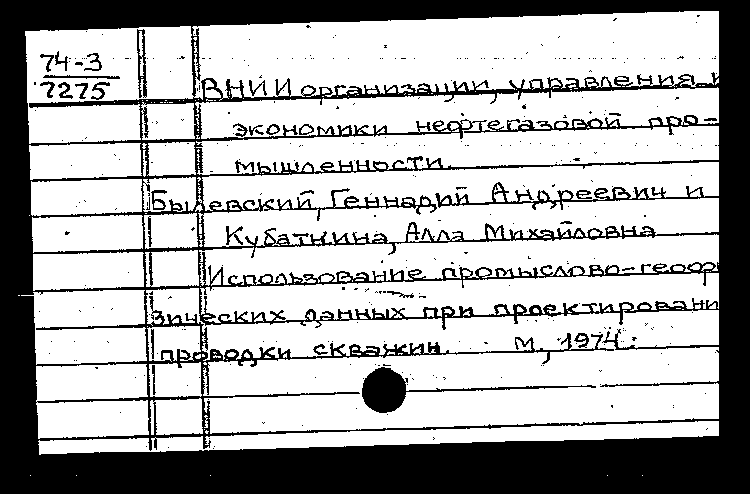 74-3
7275
ВНИИ организации, управления и
экономики нефтегазовой про-
мышленности.
Былевский, Геннадий Андреевич и
Кубаткина, Алла Михайловна
Использование промыслово-геофи
зических данных при проектировани
проводки скважин. М., 1974.